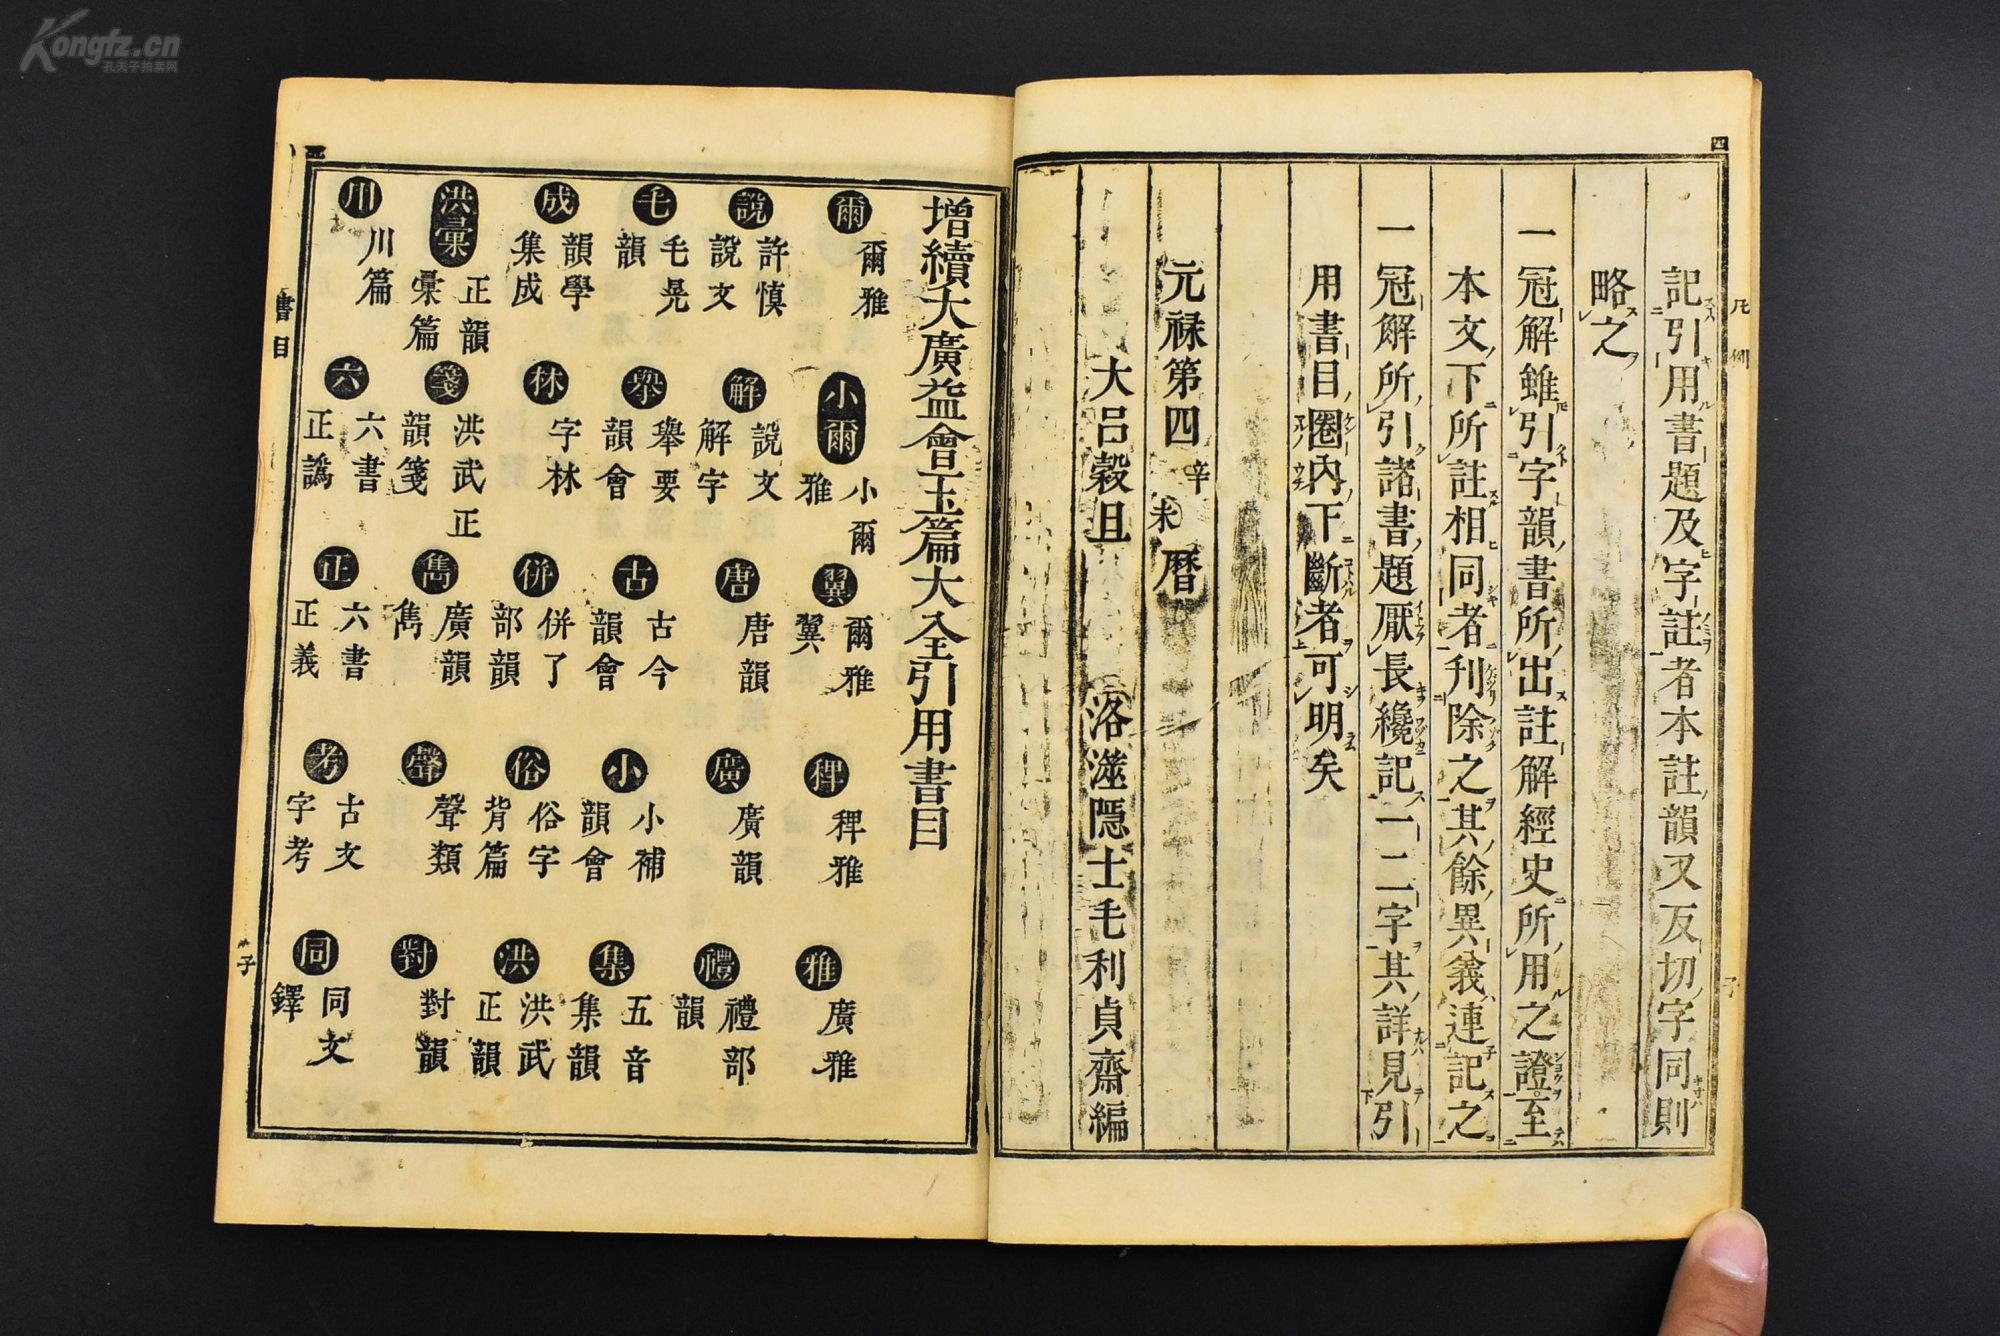 Kongfz.cn
孔夫子拍卖网
凡例
記引用書題及字註者本註韻又反切字同則
略之
一冠解雖引字韻書所出註解經史所用之證至
本文下所註相同者刊除之其餘異義連記之
一冠解所引諸書題厭長纔記一二字其詳見引
用書目圈內下斷者可明矣
元祿第四辛未曆
大呂穀旦 洛澨隱士毛利貞齋編
增續大廣益會玉篇大全引用書目
爾 爾雅
小爾 小爾雅
翼 爾雅翼
稗 稗雅
雅 廣雅
說 許慎說文
解 說文解字
唐 唐韻
廣 廣韻
禮 禮部韻
毛 毛晃韻
舉 舉要韻會
古 古今韻會
小 小補韻會
集 五音集韻
成 韻學集成
林 字林
併 併了部韻
俗 俗字背篇
洪 洪武正韻
洪彙 正韻彙篇
箋 洪武正韻箋
雋 廣韻雋
聲 聲類
對 對韻
川 川篇
六 六書正譌
正 六書正義
考 古文字考
同 同文鐸
書目
子